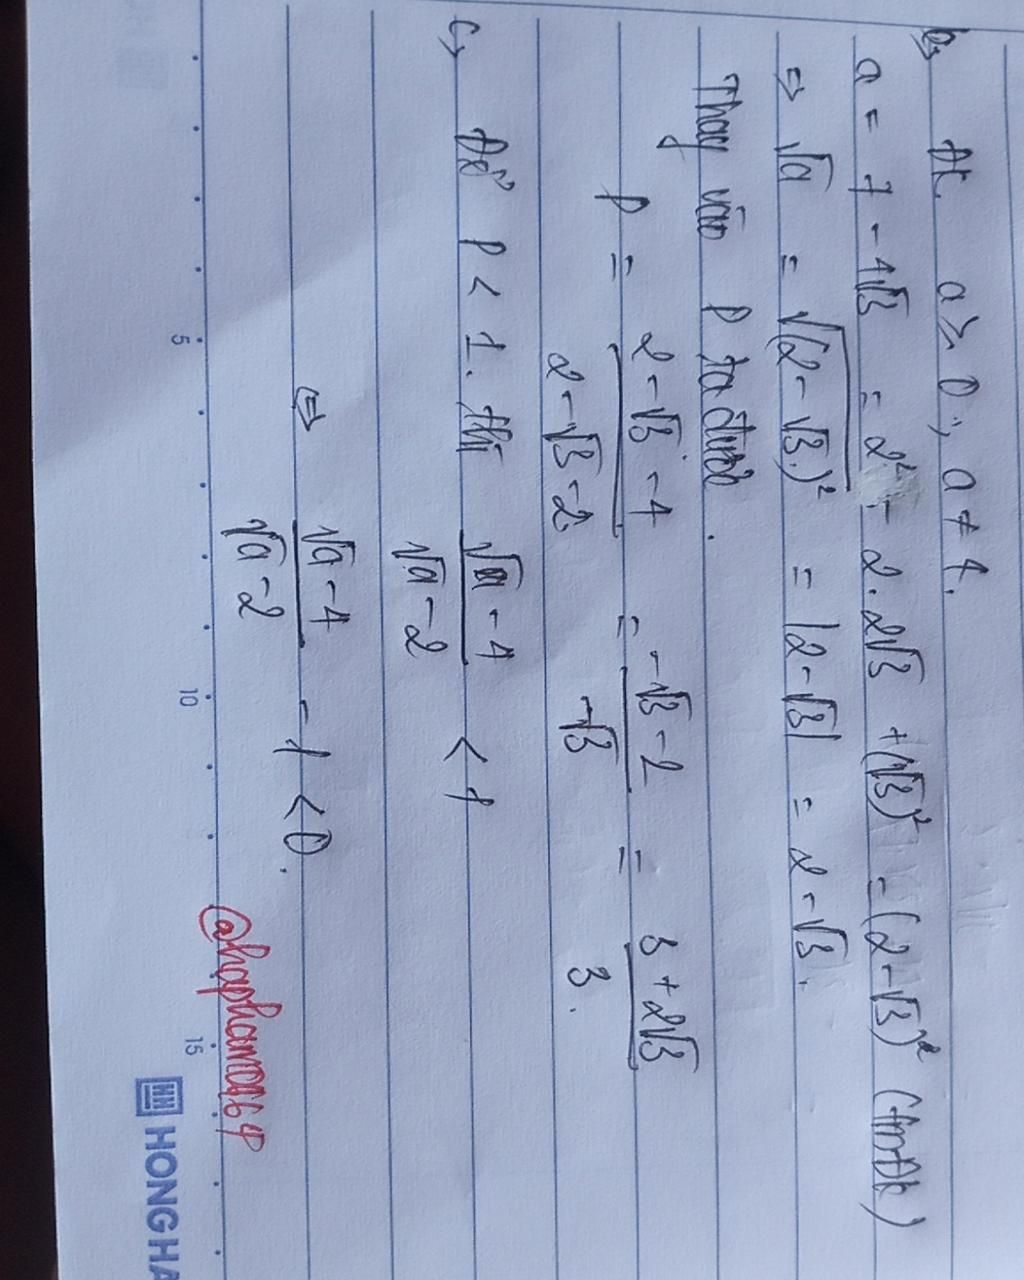 b, Đk a ≥ 0 ; a ≠ 4.
a = 7 - 4√3 = 2² - 2.2√3 + (√3)² = (2 - √3)² (tmđk)
⇒ √a = √(2 - √3)² = |2 - √3| = 2 - √3.
Thay vào P ta được
P = (2 - √3 - 4)/(2 - √3 - 2) = (-√3 - 2)/(-√3) = (3 + 2√3)/3.
c, Để P < 1. thì (√a - 4)/(√a - 2) < 1
⇔ (√a - 4)/(√a - 2) - 1 < 0.
5 10 15
HONG HA